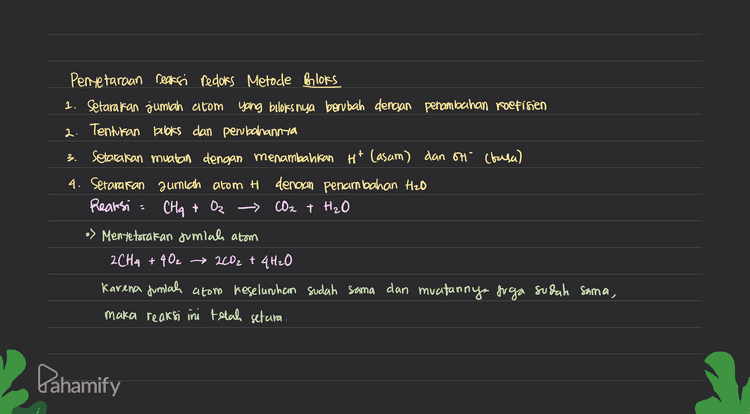 Penyetaraan reaksi redoks Metode Biloks
1. Setarakan jumlah atom yang biloksnya berubah dengan penambahan koefisien
2. Tentukan biloks dan perubahannya
3. Setarakan muatan dengan menambahkan H⁺ (asam) dan OH⁻ (basa)
4. Setarakan jumlah atom H dengan penambahan H₂O
Reaksi : CH₄ + O₂ → CO₂ + H₂O
•> Menyetarakan jumlah atom
2CH₄ + 4O₂ → 2CO₂ + 4H₂O
Karena jumlah atom keseluruhan sudah sama dan muatannya juga sudah sama,
maka reaksi ini telah setara.
Pahamify